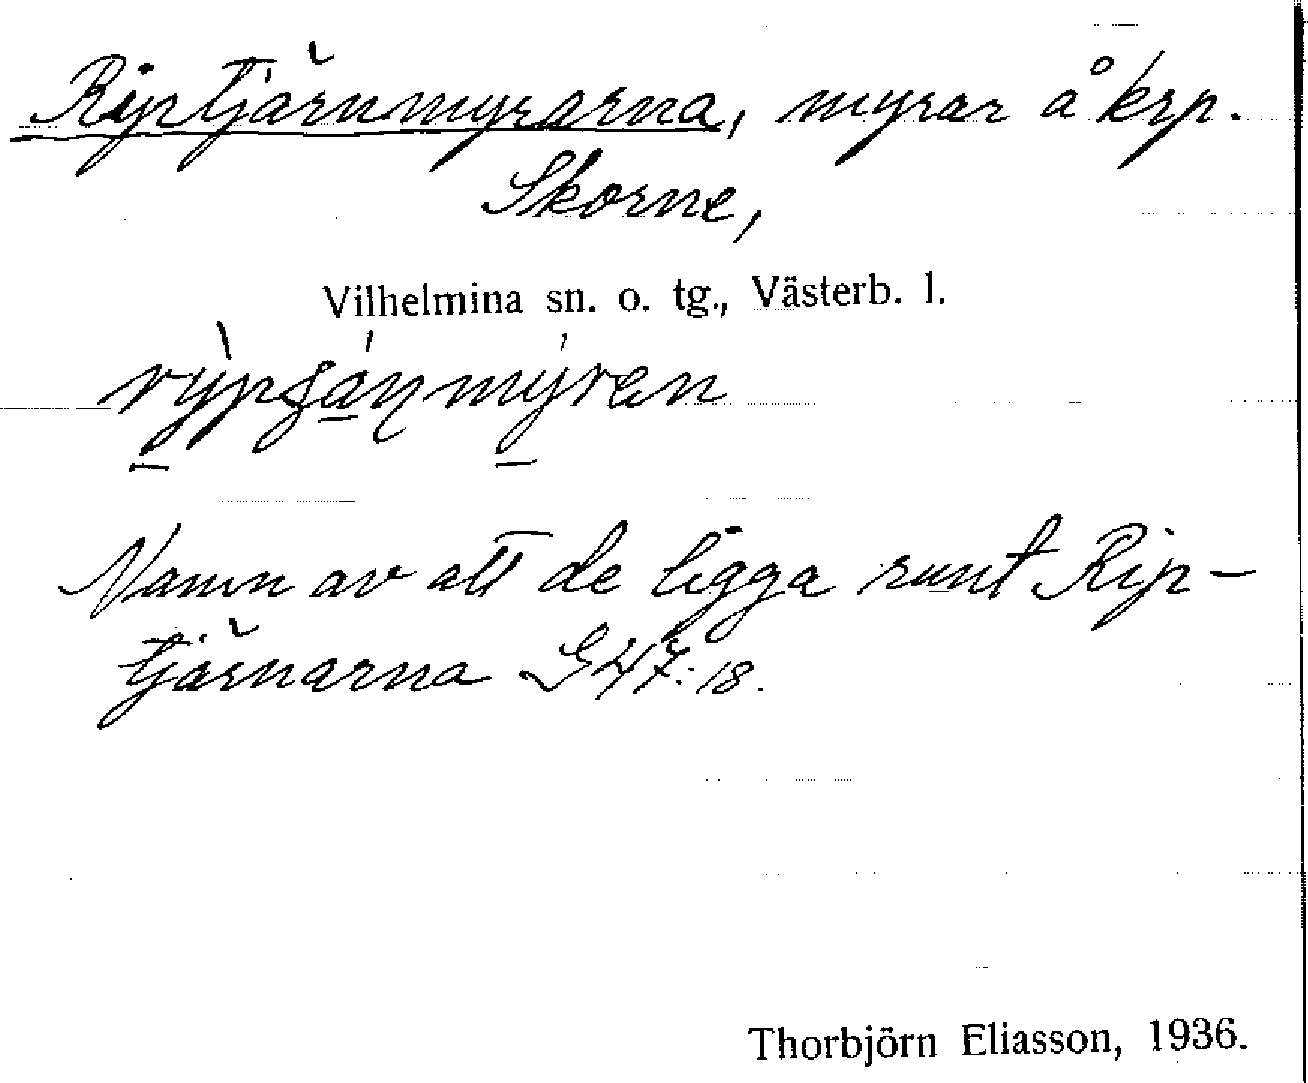 Riptjärnmyrarna, myrar å krp.
Skorne,
Vilhelmina sn. o. tg., Västerb. l.
Namn av att de ligga runt Rip-
tjärnarna G47:18.
Thorbjörn Eliasson, 1936.